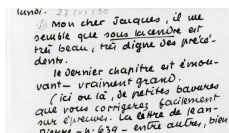 lundi. 27/VI/30
Mon cher Jacques, il me
semble que sous la cendre est
très beau, très digne des précé-
dents.
Le dernier chapitre est émou-
vant – vraiment grand.
(ici ou là, de petites bavures
que vous corrigerez facilement
sur épreuves. La lettre de Jean-
Pierre – p. 639 – entre autres, bien